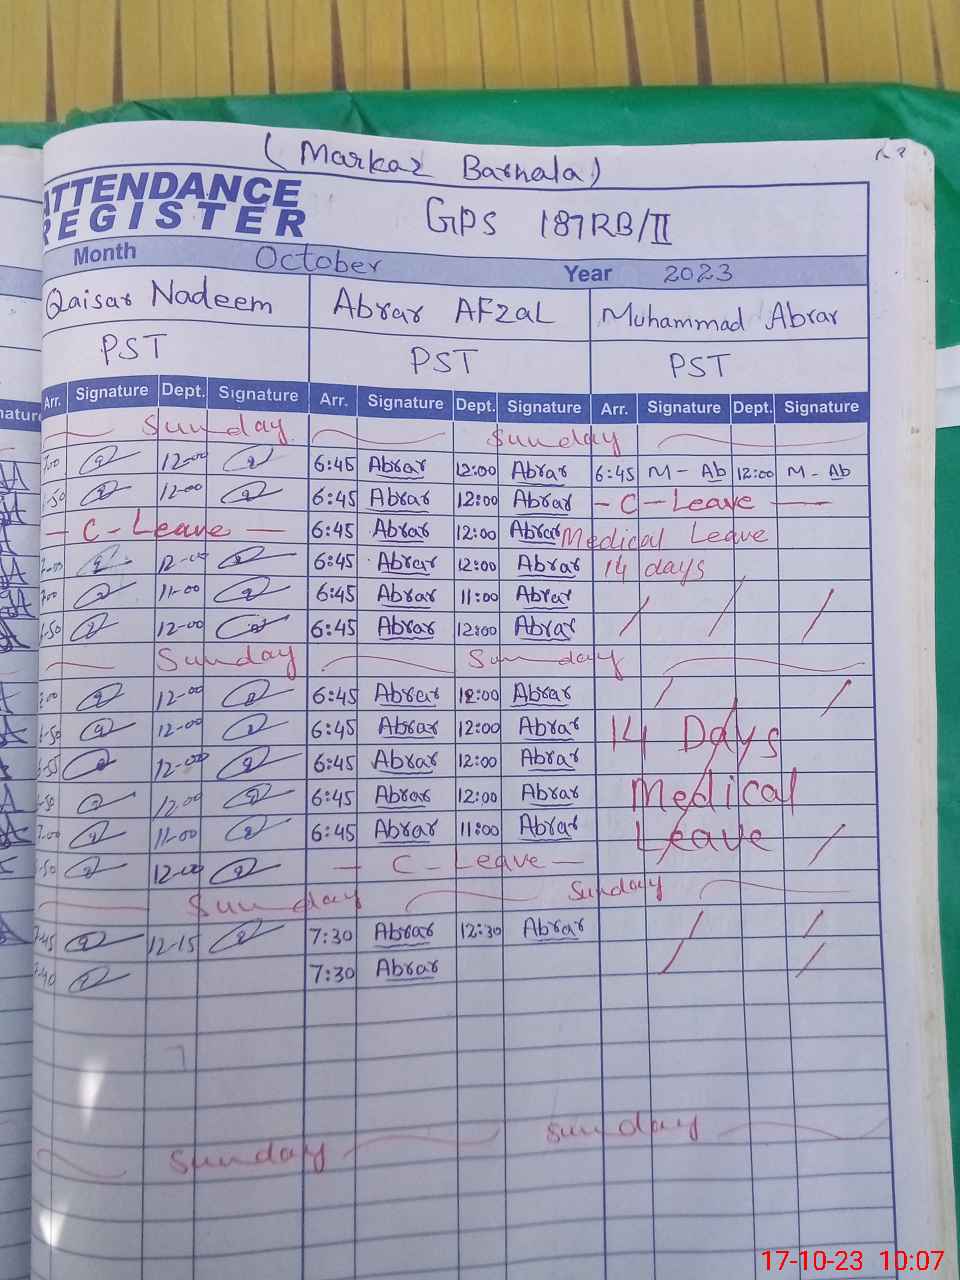 (Markaz Barnala)
ATTENDANCE REGISTER GPS 187RB/II
Month October Year 2023
Qaisar Nadeem Abrar AFzaL Muhammad Abrar
PST PST PST
Arr. Signature Dept. Signature Arr. Signature Dept. Signature Arr. Signature Dept. Signature
Sunday Sunday
7:00 12-00 6:45 Abrar 12:00 Abrar 6:45 M - Ab 12:00 M - Ab
-50 12-00 6:45 Abrar 12:00 Abrar - C - Leave -
- C - Leave - 6:45 Abrar 12:00 Abrar Medical Leave
12-00 6:45 Abrar 12:00 Abrar 14 days
7:00 11-00 6:45 Abrar 11:00 Abrar
-50 12-00 6:45 Abrar 12:00 Abrar
Sunday Sunday
12-00 6:45 Abrar 12:00 Abrar
-50 12-00 6:45 Abrar 12:00 Abrar 14 Days
-55 12-00 6:45 Abrar 12:00 Abrar
-50 12-00 6:45 Abrar 12:00 Abrar Medical
7:00 11-00 6:45 Abrar 11:00 Abrar Leave
-50 12-00 - C - Leave -
Sunday Sunday
7-45 12-15 7:30 Abrar 12:30 Abrar
-40 7:30 Abrar
Sunday Sunday
17-10-23 10:07